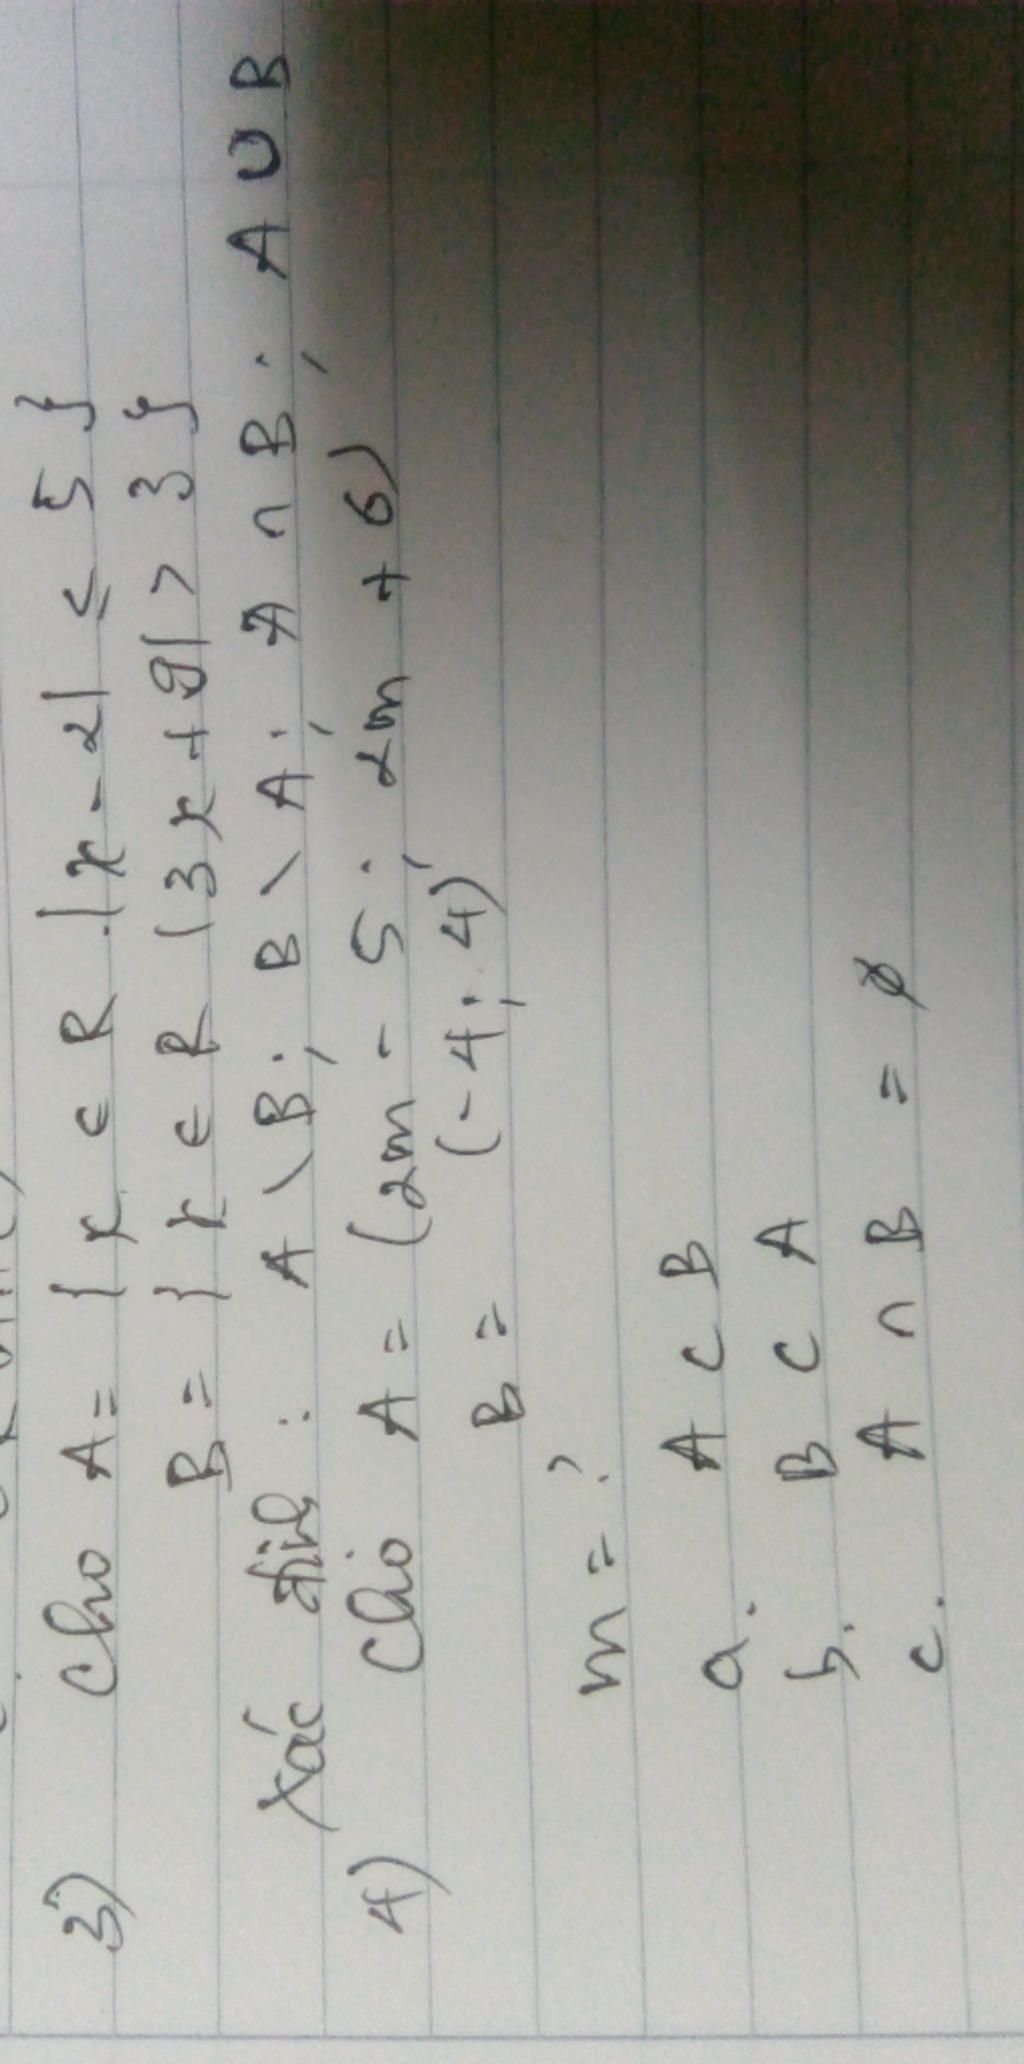 3) Cho A = { x ∈ R | |x - 2| ≤ 5 }
B = { x ∈ R | |3x + 9| > 3 }
Xác định : A \ B ; B \ A ; A ∩ B ; A ∪ B
4) Cho A = (2m - 5 ; 2m + 6)
B = (-4 ; 4)
m = ?
a. A ⊂ B
b. B ⊂ A
c. A ∩ B = ∅